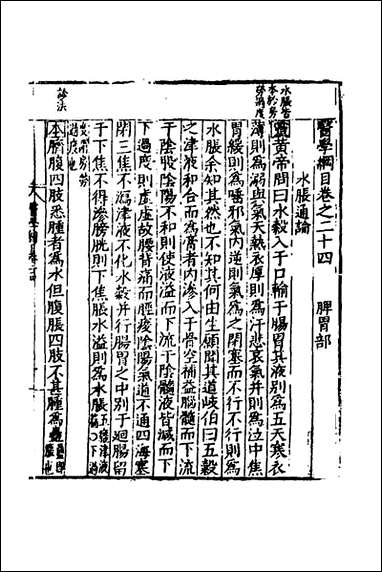 醫學綱目卷之二十四　　脾胃部
水脹通論
靈黃帝問曰水穀入于口輸于腸胃其液別爲五天寒衣
薄則爲溺與氣天熱衣厚則爲汗悲哀氣并則爲泣中焦
胃緩則爲唾邪氣内逆則氣爲之閉塞而不行不行則爲
水脹余知其然也不知其何由生願聞其道岐伯曰五穀
之津液和合而爲膏者内滲入于骨空補益腦髓而下流
于陰股陰陽不和則使液溢而下流于陰髓液皆減而下
下過度則虛虛故腰背痛而脛痠陰陽氣道不通四海塞
閉三焦不瀉津液不化水穀并行腸胃之中別于迴腸留
于下焦不得滲膀胱則下焦脹水溢則爲水脹五癃津液
診法
本腫腹四肢悉腫者爲水但腹脹四肢不甚腫爲蠱